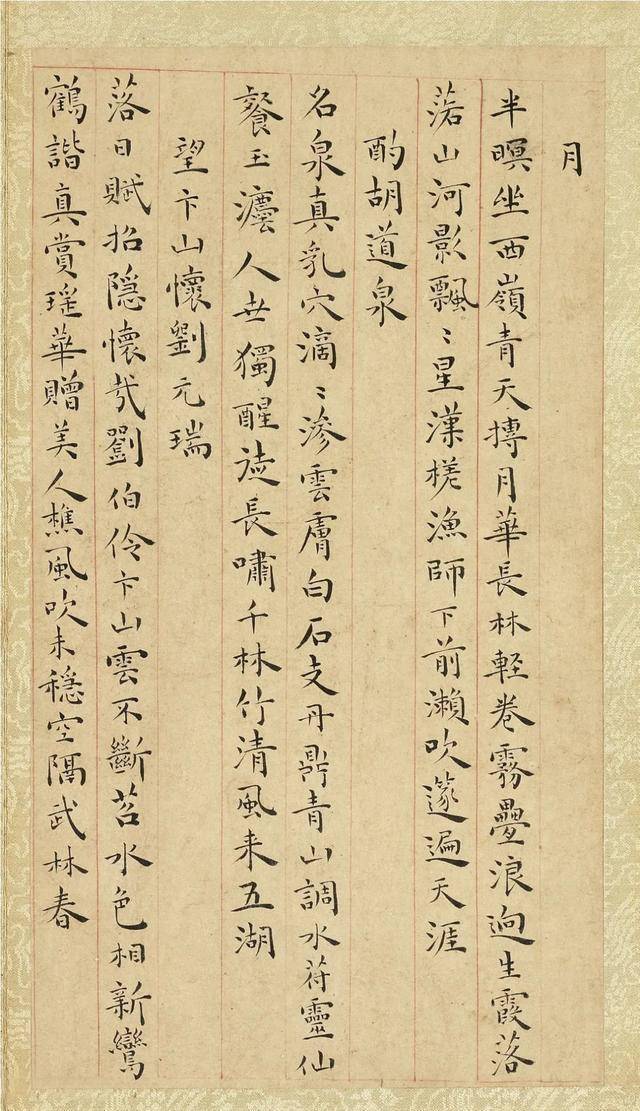 月
半暝坐西嶺青天摶月華長林輕卷霧疊浪迥生霞落
落山河影飄〻星漢槎漁師下前瀨吹篴遍天涯
酌胡道泉
名泉真乳穴滴〻滲雲膚白石支丹鼎青山調水符靈仙
餐玉瀣人世獨醒逺長嘯千林竹清風来五湖
望卞山懷劉元瑞
落日賦招隱懷哉劉伯伶卞山雲不斷苕水色相新鸞
鶴諧真賞瑤華贈美人樵風吹未穩空隔武林春